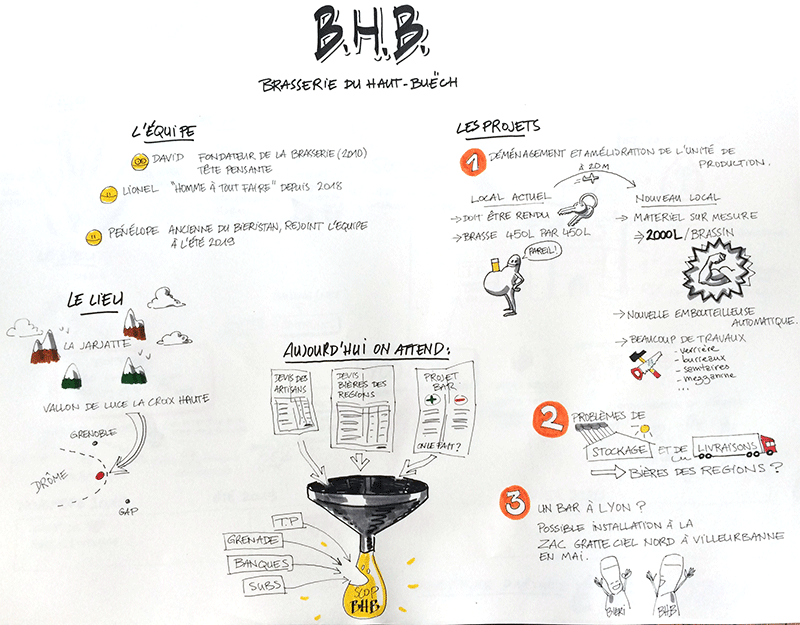 B.H.B.
BRASSERIE DU HAUT-BUËCH
L'ÉQUIPE
DAVID FONDATEUR DE LA BRASSERIE (2010)
TÊTE PENSANTE
LIONEL "HOMME À TOUT FAIRE" DEPUIS 2018
PÉNÉLOPE ANCIENNE DU BIERISTAN, REJOINT L'EQUIPE
À L'ÉTÉ 2019
LE LIEU
LA JARJATTE
VALLON DE LUCE LA CROIX HAUTE
GRENOBLE
DRÔME
GAP
LES PROJETS
1 DÉMÉNAGEMENT ET AMÉLIORATION DE L'UNITÉ DE
PRODUCTION.
À 20M
LOCAL ACTUEL
→ DOIT ÊTRE RENDU
→ BRASSE 450L PAR 450L
PAREIL!
NOUVEAU LOCAL
→ MATERIEL SUR MESURE
→ 2000L/BRASSIN
→ NOUVELLE EMBOUTEILLEUSE
AUTOMATIQUE.
→ BEAUCOUP DE TRAVAUX
- verrière
- bureaux
- sanitaires
- mezzanine
...
2 PROBLÈMES DE
STOCKAGE ET DE LIVRAISONS
BIÈRES DES REGIONS ?
3 UN BAR À LYON ?
POSSIBLE INSTALLATION À LA
ZAC GRATTE CIEL NORD À VILLEURBANNE
EN MAI.
BIERI
BHB
AUJOURD'HUI ON ATTEND :
DEVIS DES
ARTISANS
DEVIS
BIÈRES DES
REGIONS
PROJET
BAR
+ -
ON LE FAIT ?
T.P
GRENADE
BANQUES
SUBS
SCOP
BHB